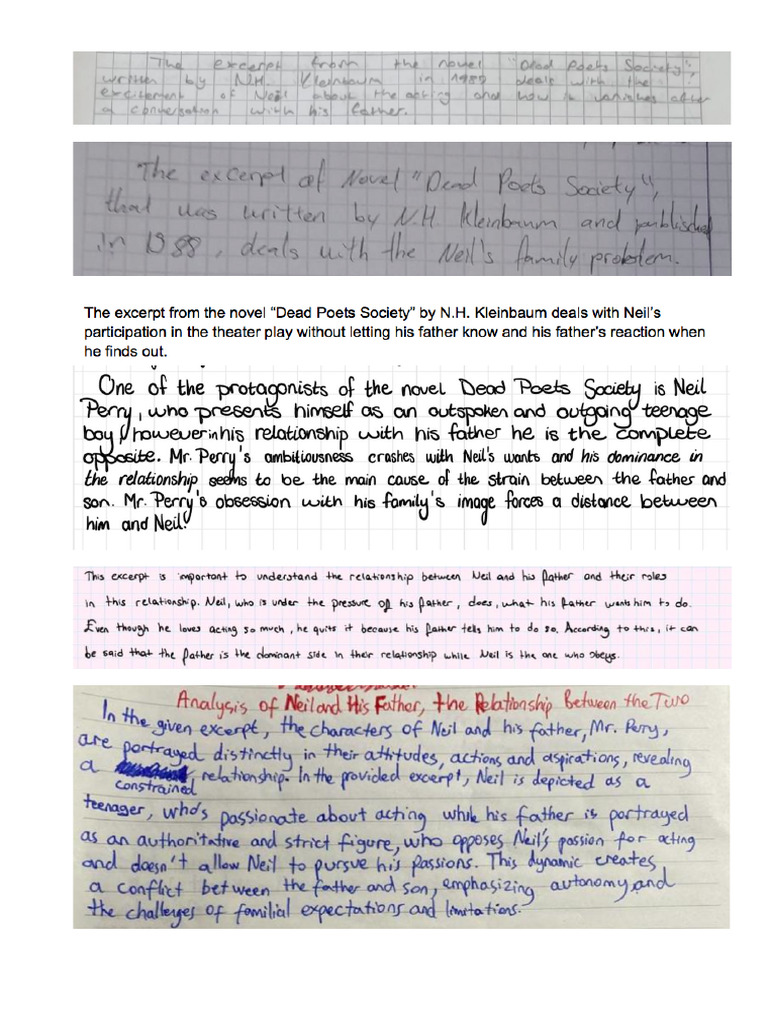 The excerpt from the novel "Dead Poets Society",
written by N.H. Kleinbaum in 1989 deals with the
excitement of Neil about the acting and how it vanishes after
a conversation with his father.
The excerpt of Novel "Dead Poets Society",
that was written by N.H. Kleinbaum and published
in 1988, deals with the Neil's family problem.
The excerpt from the novel “Dead Poets Society” by N.H. Kleinbaum deals with Neil’s
participation in the theater play without letting his father know and his father’s reaction when
he finds out.
One of the protagonists of the novel Dead Poets Society is Neil
Perry, who presents himself as an outspoken and outgoing teenage
boy, however in his relationship with his father he is the complete
opposite. Mr. Perry's ambitiousness crashes with Neil's wants and his dominance in
the relationship seems to be the main cause of the strain between the father and
son. Mr. Perry's obsession with his family's image forces a distance between
him and Neil.
This excerpt is important to understand the relationship between Neil and his father and their roles
in this relationship. Neil, who is under the pressure of his father, does, what his father wants him to do.
Even though he loves acting so much, he quits it because his father tells him to do so. According to this, it can
be said that the father is the dominant side in their relationship while Neil is the one who obeys.
Analysis of Neil and His Father, the Relationship Between the Two
In the given excerpt, the characters of Neil and his father, Mr. Perry,
are portrayed distinctly in their attitudes, actions and aspirations, revealing
a constrained relationship. In the provided excerpt, Neil is depicted as a
teenager, who's passionate about acting while his father is portrayed
as an authoritative and strict figure, who opposes Neil's passion for acting
and doesn't allow Neil to pursue his passions. This dynamic creates
a conflict between the father and son, emphasizing autonomy and
the challenges of familial expectations and limitations.